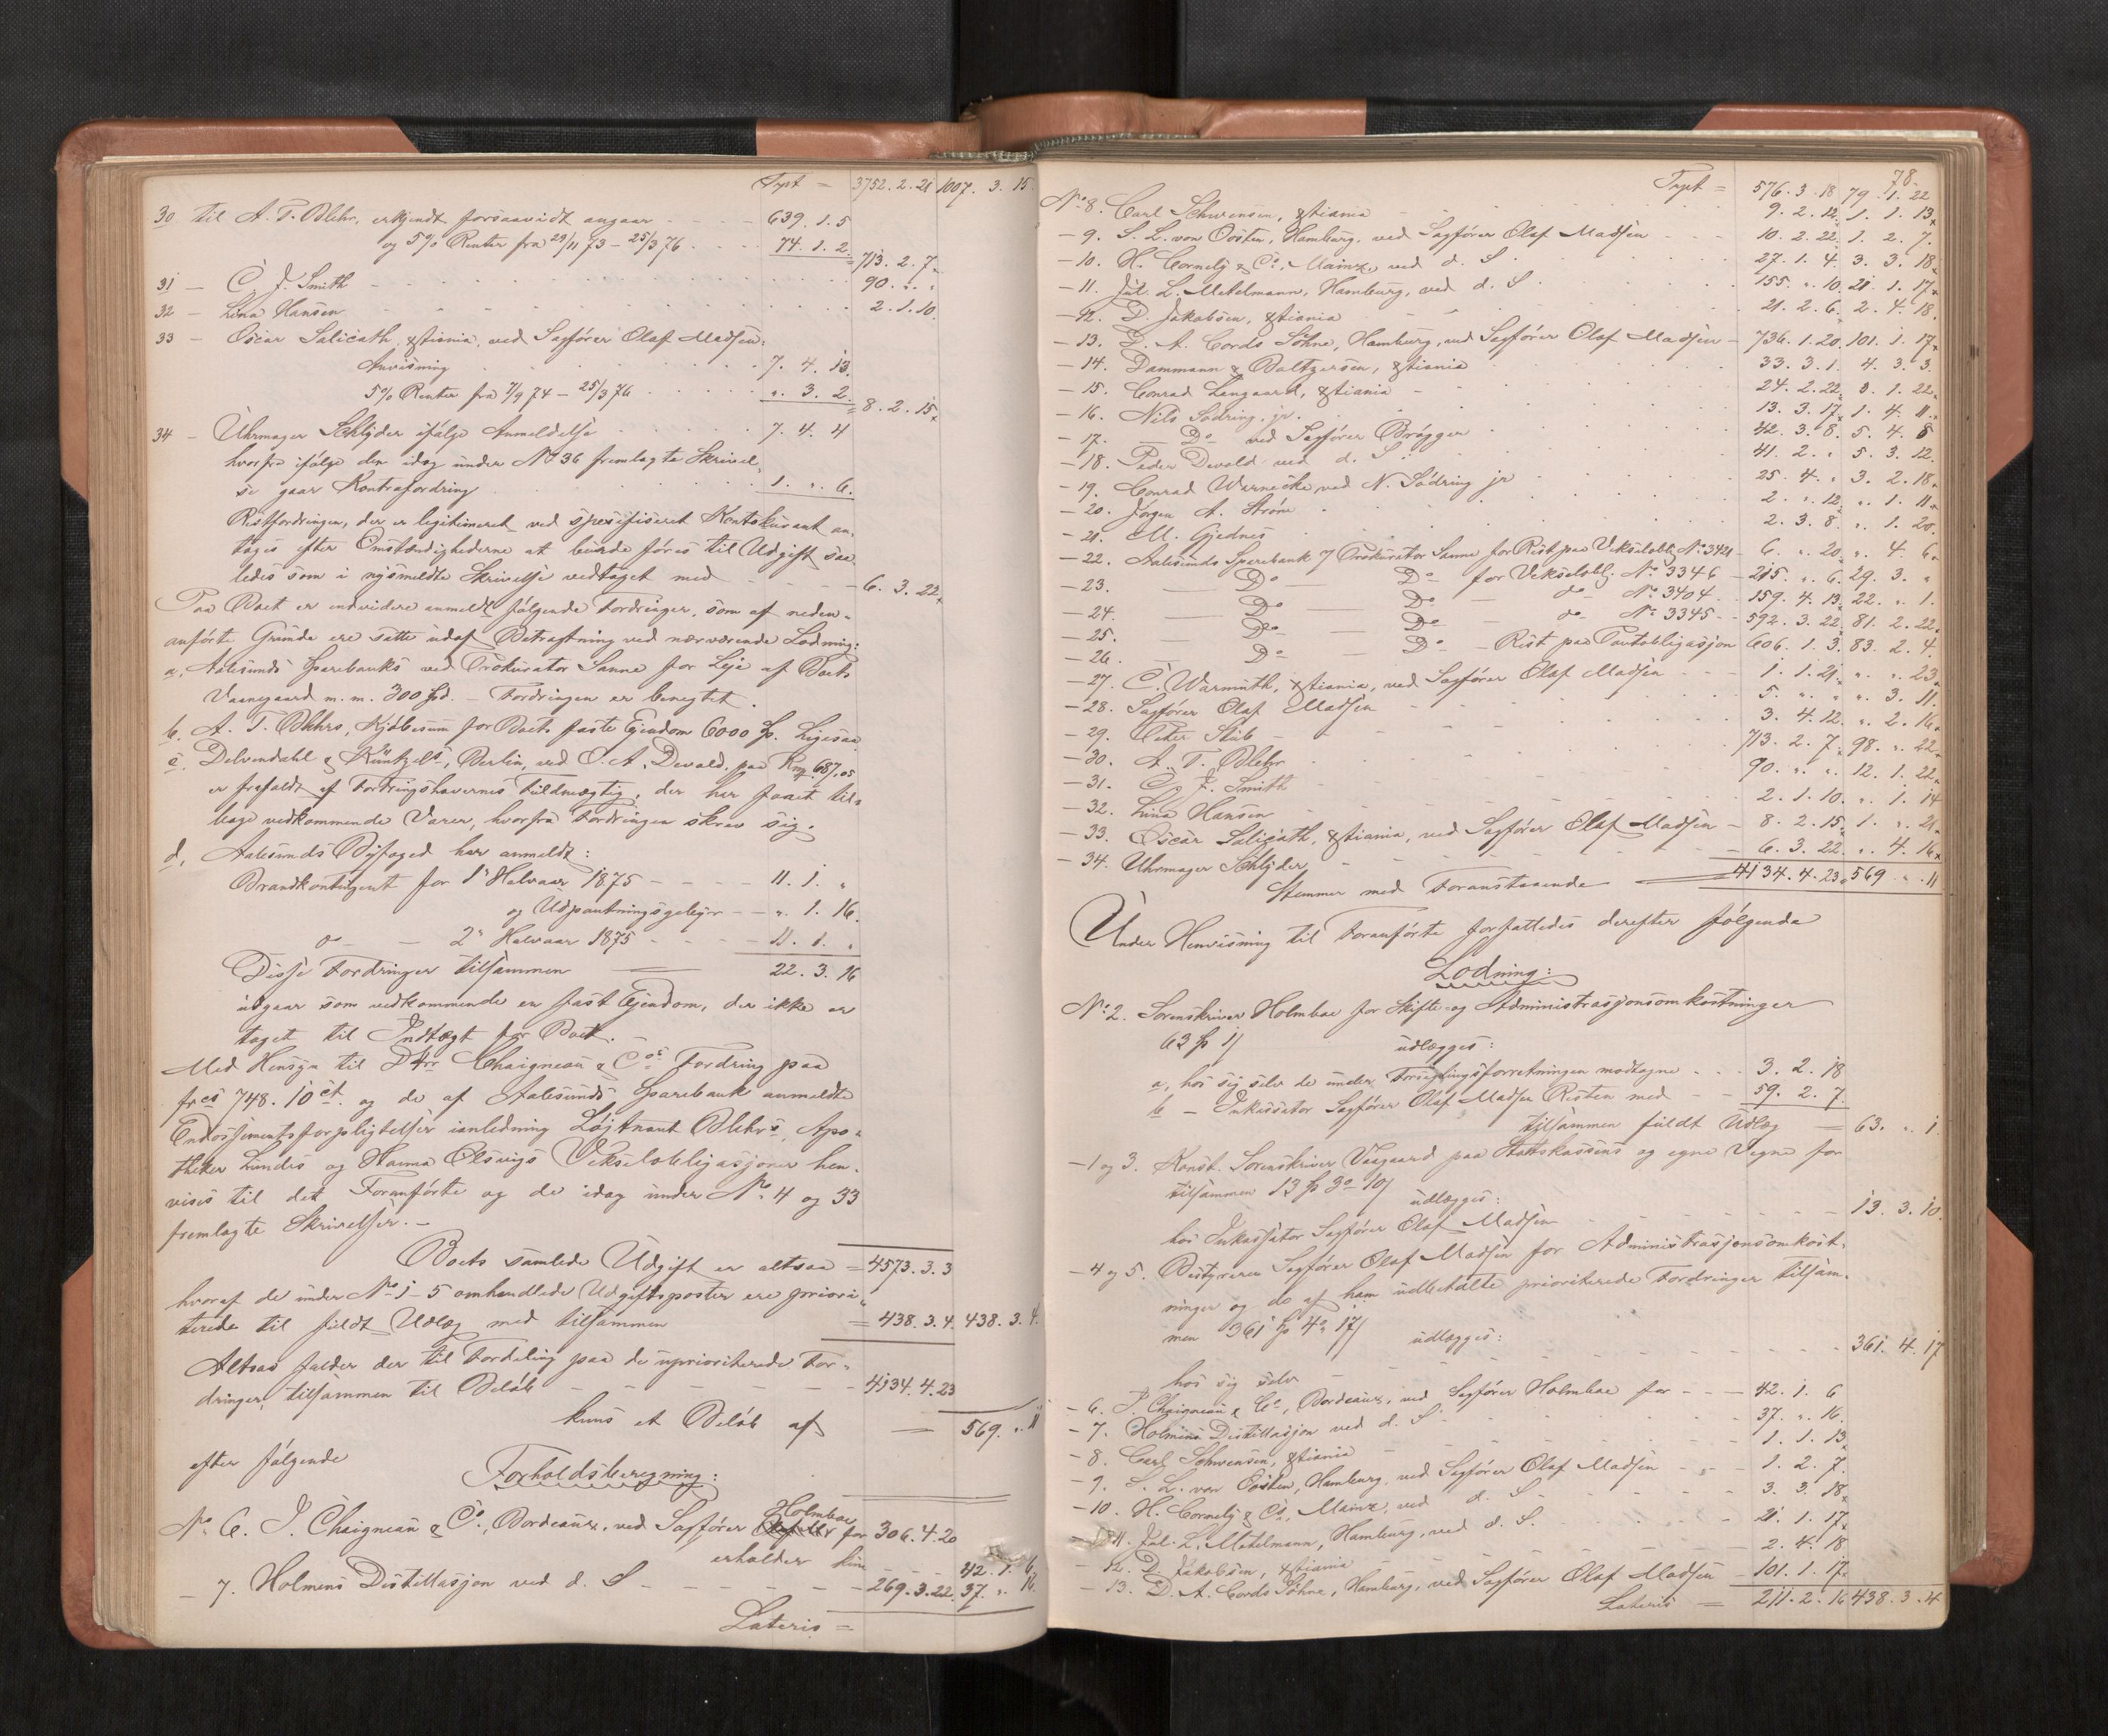 Trpt = 3752. 2. 21 1007. 3. 15.
30 til A. T. Blehr, erkjendt forsaavidt angaar - - - 639. 1. 5
og 5% Renter fra 29/11 73 - 25/3 76 - - - 74. 1. 2. = 713. 2. 7.
31 - C. J. Smith - - - 90. " "
32 - Lina Hansen - - - 2. 1. 10.
33 - Oscar Salicath, Xstiania, ved Sagfører Olaf Madsen:
Anvisning - - - 7. 4. 13.
5% Renter fra 7/9 74 - 25/3 76 - - - ". 3. 2. = 8. 2. 15.
34 - Uhrmager Schlÿder ifølge Anmeldelse - - - 7. 4. 4
hvorfra ifølge den idag under No 36 fremlagte Skrivel-
se gaar Kontrafordring - - - 1. ". 6.
Restfordringen, der er legitimeret ved spesifiseret Kontokurant an-
tages efter Omstændighederne at burde føres til Udgift saa-
ledes som i nysmeldte Skrivelse vedtaget med - - - 6. 3. 22.
Paa Boet er endvidere anmeldt følgende Fordringer, som af neden-
anførte Grunde ere satte udaf Betragtning ved nærværende Lodning:
a. Aalesunds Sparebanks ved Prokurator Sanne for Leje af Boets
Vaaningaard m. m. 300 Spd. - Fordringen er benegtet.
b. A. T. Blehrs, Kjøbesum for Boets faste Ejendom 6000 Sp. Ligesaa
c. Delvendahl & Küntzels, Berlin, ved O. A. Devold, paa Rmg. 687,05
er frafaldt af Fordringshavernes Fuldmægtig, der har faaet til-
bage vedkommende Varer, hvorfra Fordringen skrev sig.
d. Aalesunds Byfoged har anmeldt:
Brandkontingent for 1ste Halvaar 1875 - - - 11. 1. "
og Udpantningsgebyr - - ". 1. 16.
do - 2det Halvaar 1875 - - - 11. 1. "
Disse Fordringer tilsammen = 22. 3. 16
udgaar som vedkommende en fast Ejendom, der ikke er
taget til Indtægt for Boet.
Med Hensyn til Chaigneau & Cos Fordring paa
frcs 748. 10 ct. og de af Aalesunds Sparebank anmeldte
Endossementsforpligtelser ianledning Løjtnant Blehrs, Apo-
theker Lundes og Hanna Olsvigs Vekselobligasjoner hen-
vises til det Foranførte og de idag under No 4 og 33
fremlagte Skrivelser. -
Boets samlede Udgift er altsaa = 4573. 3. 3
hvoraf de under No 1-5 omhandlede Udgiftsposter ere priori-
terede til fuldt Udlæg med tilsammen = 438. 3. 4. 438. 3. 4.
Altsaa falder der til Fordeling paa de uprioriterede For-
dringer, tilsammen til Beløb - - - 4134. 4. 23
kuns et Beløb af = 569. ". 11
efter følgende
Forholdsberegning:
No 6. J. Chaigneau & Co, Bordeaux, ved Sagfører Holmboe for 306. 4. 20
erholder kun - - 42. 1. 6.
- 7. Holmens Distillasjon ved d. S - - - 269. 3. 22. 37. ". 16.
Lateris =
78.
Trpt = 576. 3. 18 79. 1. 22
No 8. Carl Schwensen, Xstiania - - - 9. 2. 12. 1. 1. 13.
- 9. S. L. von Oosten, Hamburg, ved Sagfører Olaf Madsen - - 10. 2. 22. 1. 2. 7.
- 10. H. Cornely & Co, Mainz, ved d. S - - - 27. 1. 4. 3. 3. 18.
- 11. Jul. L. Metelmann, Hamburg, ved d. S - - - 155. ". 10. 21. 1. 17.
- 12. D. Jakobsen, Xstiania - - - 21. 2. 6. 2. 4. 18.
- 13. D. A. Cords Söhne, Hamburg, ved Sagfører Olaf Madsen - 736. 1. 20. 101. 1. 17.
- 14. Dammann & Baltzersen, Xstiania - - - 33. 3. 1. 4. 3. 3.
- 15. Conrad Langaard, Xstiania - - - 24. 2. 22. 3. 1. 22.
- 16. Nils Sødring, jr. - - - 13. 3. 17. 1. 4. 11.
- 17. - Do ved Sagfører Brøgger - - - 42. 3. 8. 5. 4. 8
- 18. Peder Devold ved d. S - - - 41. 2. " 5. 3. 12.
- 19. Conrad Warnecke, ved N. Sødring jr - - - 25. 4. " 3. 2. 18.
- 20. Jørgen A. Strøm - - - 2. ". 12. ". 1. 11.
- 21. M. Gjednes - - - 2. 3. 8. ". 1. 20.
- 22. Aalesunds Sparebank v/ Prokurator Sanne for Rest paa Vekselobl. No 3421 - 6. ". 20. ". 4. 6.
- 23. Do - Do for Vekselobl. No 3346 - 215. ". 6. 29. 3. "
- 24. Do - Do - do No 3404 - 159. 4. 13. 22. ". 1.
- 25. Do - Do - do No 3345 - 592. 3. 22. 81. 2. 22.
- 26. Do - Do - Rest paa Pantobligasjon 606. 1. 3. 83. 2. 4.
- 27. C. Warmuth, Xstiania, ved Sagfører Olaf Madsen - - - 1. 1. 21. ". ". 23.
- 28. Sagfører Olaf Madsen - - - 5. ". " ". 3. 11.
- 29. Peter Stub - - - 3. 4. 12. ". 2. 16.
- 30. A. T. Blehr - - - 713. 2. 7. 98. ". 22.
- 31. C. J. Smith - - - 90. ". ". 12. 1. 22.
- 32. Lina Hansen - - - 2. 1. 10. ". 1. 14
- 33. Oscar Salicath, Xstiania, ved Sagfører Olaf Madsen - 8. 2. 15. 1. ". 21.
- 34. Uhrmager Schlÿder - - - 6. 3. 22. ". 4. 16.
Stemmer med Foranstaaende = 4134. 4. 23. 569 ". 11
Under Henvisning til Foranførte forfattedes derefter følgende
Lodning:
No 2. Sorenskriver Holmboe for Skifte- og Administrasjonsomkostninger
63 Sp 1 /
udlægges:
a, hos sig selv de under Forseglingsforretningen modtagne - - - 3. 2. 18
b - Inkassator Sagfører Olaf Madsen Resten med - - 59. 2. 7.
tilsammen fuldt Udlæg = 63. ". 1.
- 1 og 3. Konst. Sorenskriver Vaagaard paa Statskassens og egne Vegne for
tilsammen 13 Sp 3 o 10 /
udlægges:
hos Inkassator Sagfører Olaf Madsen - - - 13. 3. 10.
- 4 og 5. Bestyreren Sagfører Olaf Madsen for Administrasjonsomkost-
ninger og de af ham udbetalte prioriterede Fordringer tilsam-
men 361 Sp 4 o 17 /
udlægges:
hos sig selv - - - 361. 4. 17
- 6. J. Chaigneau & Co, Bordeaux, ved Sagfører Holmboe for - - - 42. 1. 6
- 7. Holmens Distillasjon ved d. S - - - 37. ". 16.
- 8. Carl Schwensen, Xstiania - - - 1. 1. 13.
- 9. S. L. von Oosten, Hamburg, ved Sagfører Olaf Madsen - - - 1. 2. 7.
- 10. H. Cornely & Co, Mainz, ved d. S - - - 3. 3. 18.
- 11. Jul. L. Metelmann, Hamburg, ved d. S. - - - 21. 1. 17.
- 12. D. Jakobsen, Xstiania - - - 2. 4. 18
- 13. D. A. Cords Söhne, Hamburg, ved Sagfører Olaf Madsen - 101. 1. 17.
Lateris = 211. 2. 16 438. 3. 4